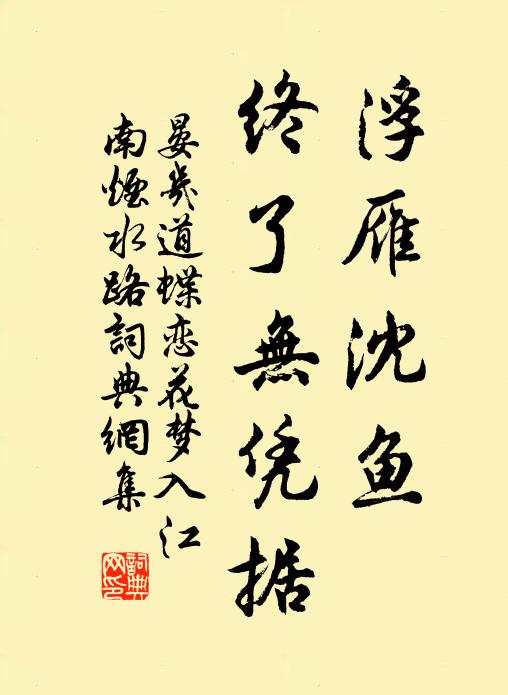 浮雁沈鱼
终了無凭据
晏幾道蝶恋花梦入江
南烟水路詞典網集
詞典
网印